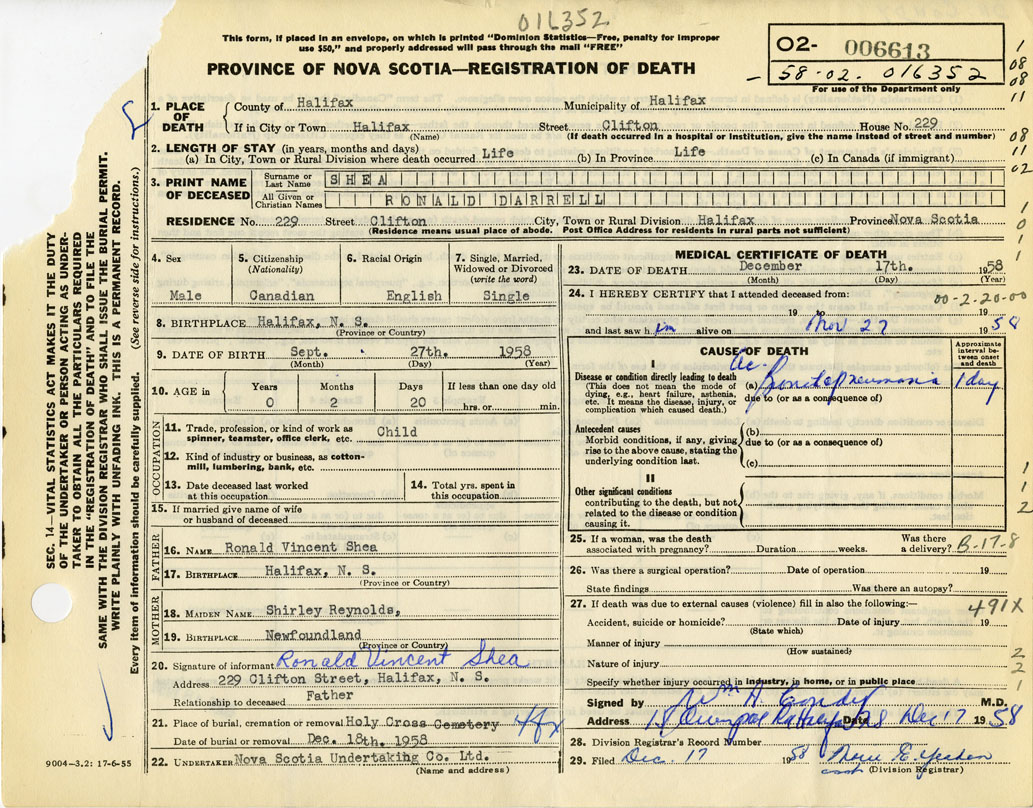 016352
This form, if placed in an envelope, on which is printed "Dominion Statistics—Free, penalty for improper
use $50," and properly addressed will pass through the mail "FREE"
PROVINCE OF NOVA SCOTIA—REGISTRATION OF DEATH
02- 006613
58-02. 016352
For use of the Department only
1. PLACE OF DEATH
County of Halifax Municipality of Halifax
If in City or Town Halifax Street Clifton House No. 229
(Name) (If death occurred in a hospital or institution, give the name instead of street and number)
2. LENGTH OF STAY (in years, months and days)
(a) In City, Town or Rural Division where death occurred Life (b) In Province Life (c) In Canada (if immigrant)
3. PRINT NAME OF DECEASED
Surname or Last Name SHEA
All Given or Christian Names RONALD DARRELL
RESIDENCE No. 229 Street Clifton City, Town or Rural Division Halifax Province Nova Scotia
(Residence means usual place of abode. Post Office Address for residents in rural parts not sufficient)
4. Sex
Male
5. Citizenship
(Nationality)
Canadian
6. Racial Origin
English
7. Single, Married,
Widowed or Divorced
(write the word)
Single
8. BIRTHPLACE Halifax, N. S.
(Province or Country)
9. DATE OF BIRTH Sept. 27th. 1958
(Month) (Day) (Year)
10. AGE in
Years Months Days If less than one day old
0 2 20 hrs. or min.
OCCUPATION
11. Trade, profession, or kind of work as
spinner, teamster, office clerk, etc. Child
12. Kind of industry or business, as cotton-
mill, lumbering, bank, etc.
13. Date deceased last worked
at this occupation
14. Total yrs. spent in
this occupation
15. If married give name of wife
or husband of deceased
FATHER
16. NAME Ronald Vincent Shea
17. BIRTHPLACE Halifax, N. S.
(Province or Country)
MOTHER
18. MAIDEN NAME Shirley Reynolds,
19. BIRTHPLACE Newfoundland
(Province or Country)
20. Signature of informant Ronald Vincent Shea
Address 229 Clifton Street, Halifax, N. S.
Relationship to deceased Father
21. Place of burial, cremation or removal Holy Cross Cemetery
Date of burial or removal Dec. 18th. 1958
22. UNDERTAKER Nova Scotia Undertaking Co. Ltd.
(Name and address)
MEDICAL CERTIFICATE OF DEATH
23. DATE OF DEATH December 17th. 1958
(Month) (Day) (Year)
24. I HEREBY CERTIFY that I attended deceased from:
00-2.20-00
19 to 19
and last saw him alive on Nov 27 1958
CAUSE OF DEATH
Approximate
interval be-
tween onset
and death
I
Disease or condition directly leading to death
(This does not mean the mode of
dying, e.g., heart failure, asthenia,
etc. It means the disease, injury, or
complication which caused death.)
Ac.
(a) 1 day
due to (or as a consequence of)
Antecedent causes
Morbid conditions, if any, giving
rise to the above cause, stating the
underlying condition last.
(b)
due to (or as a consequence of)
(c)
II
Other significant conditions
contributing to the death, but not
related to the disease or condition
causing it.
25. If a woman, was the death
associated with pregnancy? Duration weeks. Was there
a delivery? B-17-8
26. Was there a surgical operation? Date of operation 19
State findings Was there an autopsy?
27. If death was due to external causes (violence) fill in also the following:—
491X
Accident, suicide or homicide? Date of injury 19
(State which)
Manner of injury
(How sustained)
Nature of injury
Specify whether injury occurred in industry, in home, or in public place
Signed by M.D.
Address Date Dec 17 1958
28. Division Registrar's Record Number
29. Filed Dec. 17 1958
(Division Registrar)
SEC. 14—VITAL STATISTICS ACT MAKES IT THE DUTY
OF THE UNDERTAKER OR PERSON ACTING AS UNDER-
TAKER TO OBTAIN ALL THE PARTICULARS REQUIRED
IN THE "REGISTRATION OF DEATH" AND TO FILE THE
SAME WITH THE DIVISION REGISTRAR WHO SHALL ISSUE THE BURIAL PERMIT.
WRITE PLAINLY WITH UNFADING INK. THIS IS A PERMANENT RECORD.
Every item of information should be carefully supplied. (See reverse side for instructions.)
9004—3.2: 17-6-55
1
08
08
11
08
11
02
1
0
1
1
1
2
2
2
1